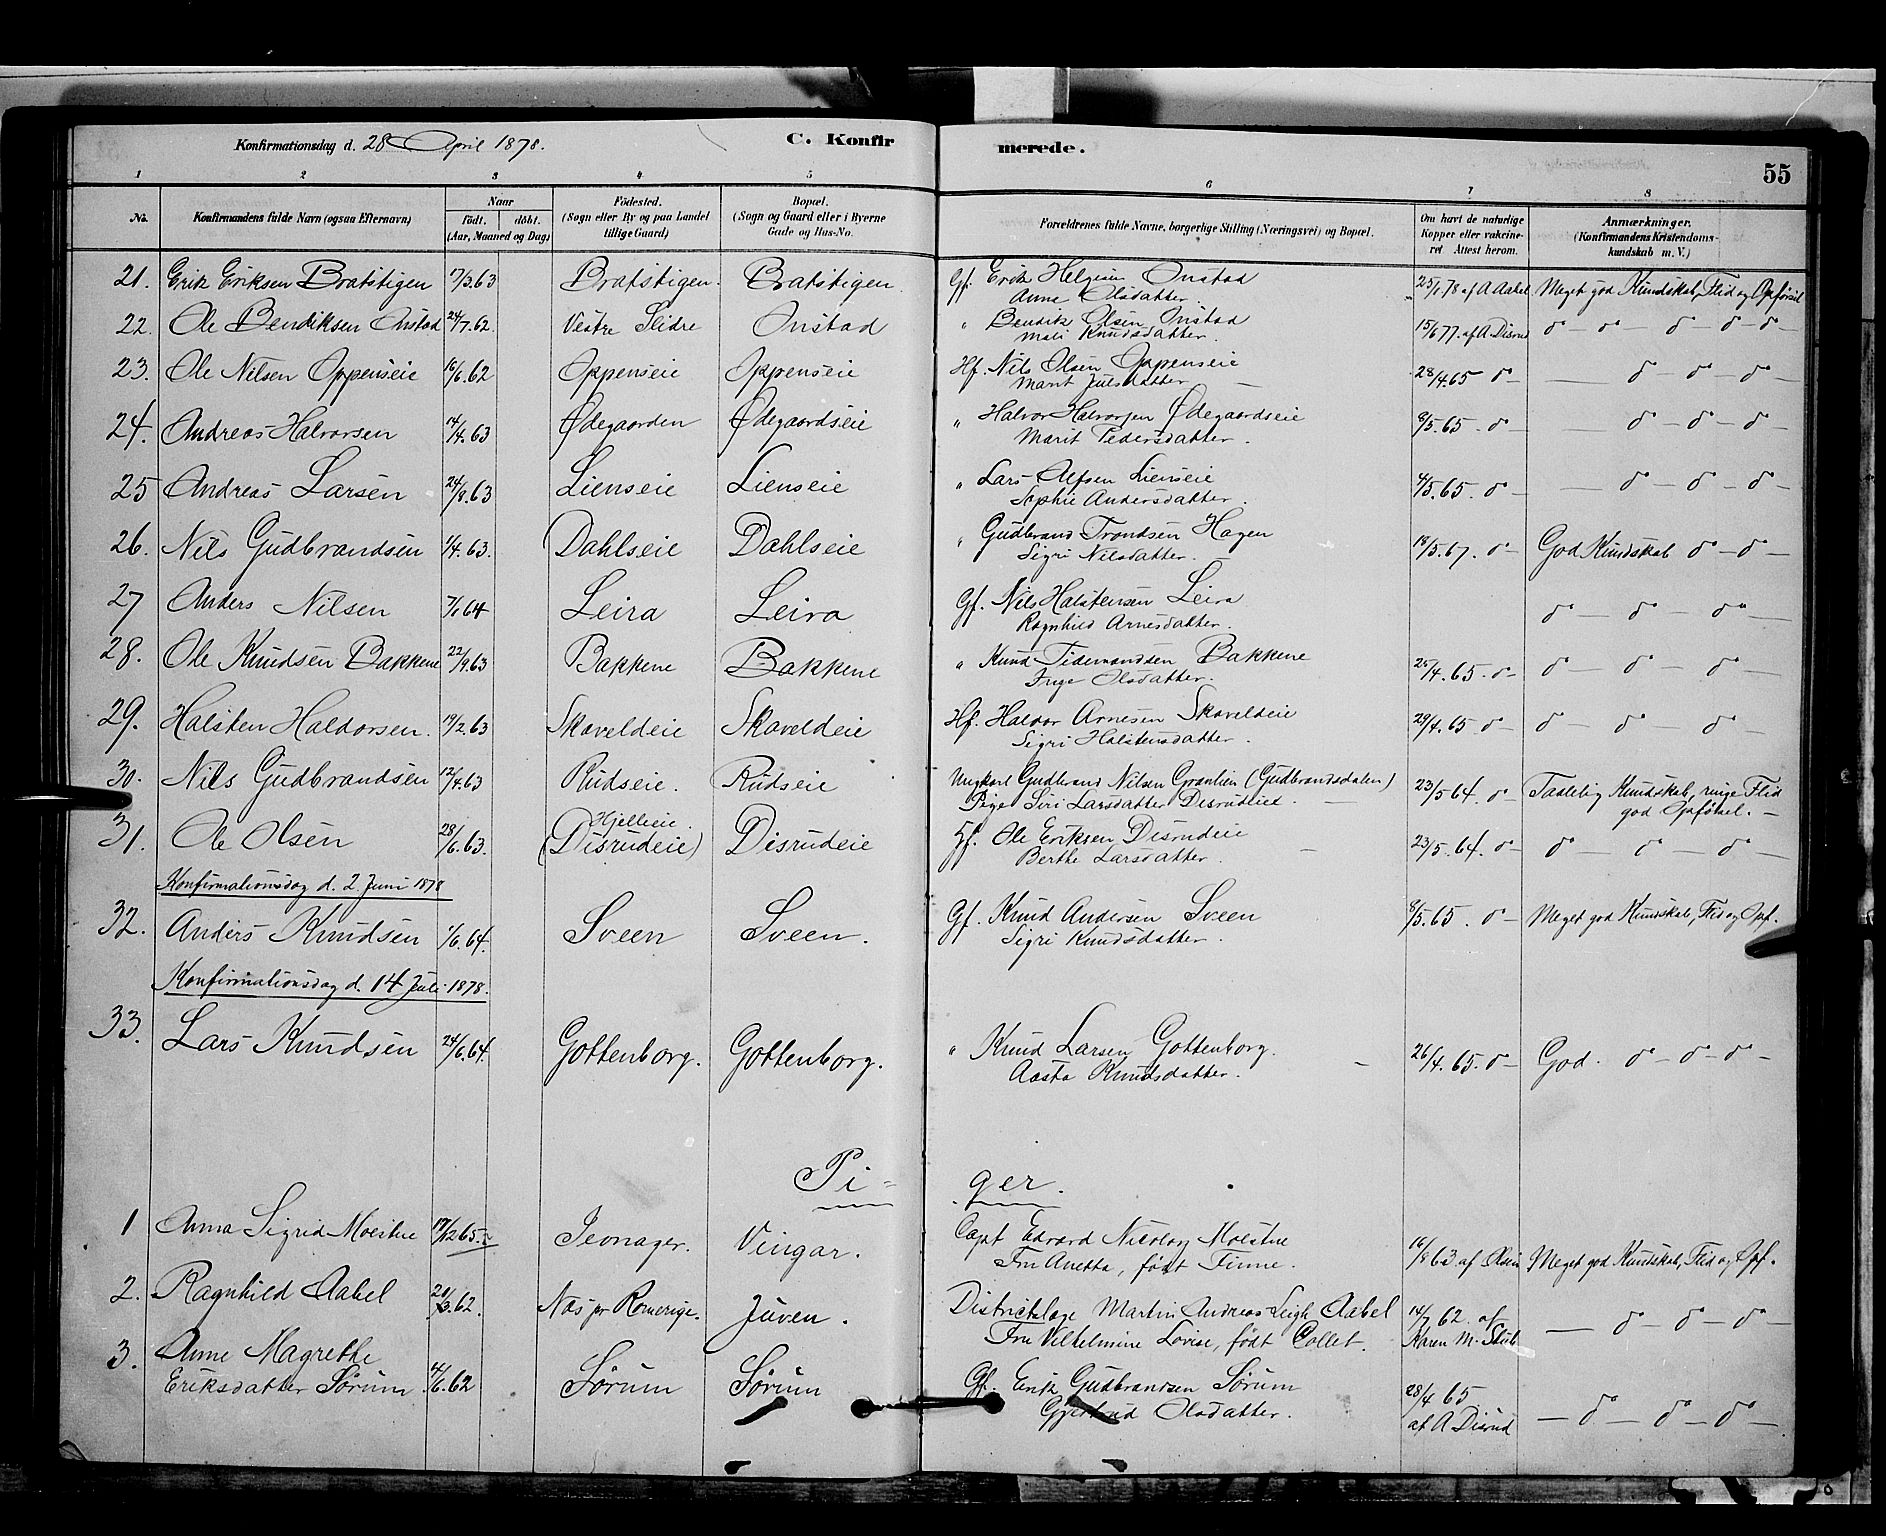 Konfirmationsdag d. 28 April 1878. C. Konfir merede. 55
1 2 3 4 5 6 7 8
No. Konfirmandens fulde Navn (ogsaa Efternavn) Naar født. døbt. (Aar, Maaned og Dag) Fødested. (Sogn eller By og paa Landet tillige Gaard) Bopæl. (Sogn og Gaard eller i Byerne Gade og Hus-No. Forældrenes fulde Navne, borgerlige Stilling (Næringsvei) og Bopæl. Om havt de naturlige Kopper eller vakcineret Attest herom. Anmærkninger. (Konfirmandens Kristendomskundskab m. V.)
21. Erik Eriksen Bratstigen 17/3.63 Bratstigen. Bratstigen. Gf. Erik Helgesen Onstad 23/1.78 af A Aabel Meget god Kundskab, Flid og Opførsel
Anne Olsdatter.
22. Ole Bendiksen Onstad 24/7.62. Vestre Slidre Onstad " Bendik Olsen Onstad 15/6 77. af A. Disrud do — do — do — do — do —
Mali Knudsdatter.
23. Ole Nilsen Oppenseie 16/6.62 Oppenseie Oppenseie Hf. Nils Olsen Oppenseie 28/4.65 do — — do — do — do —
Marit Julsdatter —
24. Andreas Halvorsen 14/4.63 Ødegaarden Ødegaardseie " Halvor Halvorsen Ødegaardseie 9/5.65. do — — do — do — do —
Marit Pedersdatter.
25 Andreas Larsen 24/8.63 Lienseie Lienseie " Lars Alfsen Lienseie 4/5.65. do — — do — do — do —
Sophie Andersdatter.
26. Nils Gudbrandsen 1/4.63. Dahlseie Dahlseie " Gudbrand Trondsen Hagen 18/5.67. do — God Kundskab do — do —
Sigri Nilsdatter. —
27 Anders Nilsen 7/1 64 Leira Leira Gf. Nils Halstensen Leira do — do — do —
Ragnhild Arnesdatter.
28. Ole Knudsen Bakkene 22/9.63 Bakkene Bakkene " Knud Tidemandsen Bakkene 25/4.65. do — do — do — do —
Inge Olsdatter.
29. Halsten Haldorsen. 19/2.63 Skaveldeie Skaveldeie Hf. Haldor Arnesen Skaveldeie 29/4.65 do — do — do — do —
Sigri Halstensdatter.
30. Nils Gudbrandsen 12/4.63 Rudseie. Rudseie Ungkarl Gudbrand Nilsen Granlien (Gudbrandsdalen) 23/5 64. do — Taalelig Kundskab, ringe Flid
Pige Siri Larsdatter Disrudeie. — god Opførsel. —
Hjelleeie.
31. Ole Olsen 28/6.63. (Disrudeie) Disrudeie Hf. Ole Eriksen Disrudeie 23/5.64. do — do — do — do —
Berthe Larsdatter. —
Konfirmationsdag d. 2 Juni 1878
32. Anders Knudsen 1/6.64. Sveen Sveen. Gf. Knud Andersen Sveen 8/5.65. do — Meget god Kundskab, Flid og Opf.
Sigri Knudsdatter.
Konfirmationsdag d. 14 Juli 1878.
33. Lars Knudsen 24/6.64. Gottenborg. Gottenborg. " Knud Larsen Gottenborg. 26/4.65. do — God. do — do — do —
Aasta Knudsdatter. —
Pi- ger.
1 Anna Sigrid Moestue 17/12 65. Jevnager. Vingar. Capt Edvard Nicolay Moestue 16/8 63 af Olsen Meget god Kundskab, Flid og Opf.
Fru Anetta, født Finne.
2. Ragnhild Aabel 20/3.62. Næs pr Romerige. Juven. Districtslæge Martin Andreas Leigh Aabel 14/7 62. af — do — do — do —
Fru Vilhelmine Lovise, født Collet. Karen M.
3. Anne Magrethe
Eriksdatter Sørum 4/6.62 Sørum Sørum Gf. Erik Gudbrandsen Sørum 28/4 65 — do — do — do —
Gjertrud Olsdatter. af A Disrud